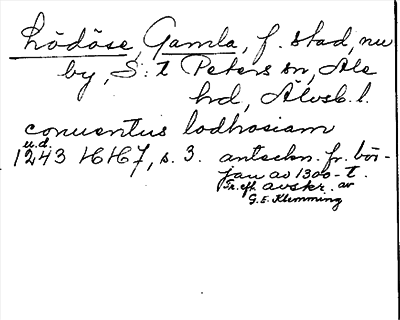 Lödöse, Gamla, f. stad, nu
by, S:t Peters sn, Ale
hd, Älvsb. l.
conuentus lodhosiam
u.d.
1243 HH7, s. 3. antechn. fr. bör-
jan av 1300-t.
Tr. eft. avskr. av
G. E. Klemming